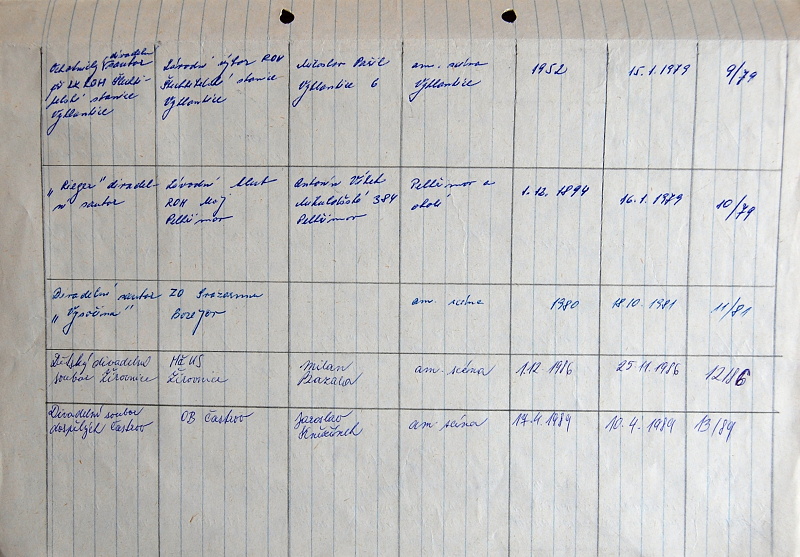 Ochotnický divadeln. soubor
při ZK ROH Šlechti-
telské stanice
Vyklantice
Závodní výbor ROH
Šlechtitelské stanice
Vyklantice
Miloslav
Vyklantice 6
am. scéna
Vyklantice
1952
15.1.1979
9/79
„Rieger" divadel-
ní soubor
Závodní klub
ROH
Pelhřimov
Antonín Vítek
384
Pelhřimov
Pelhřimov a
okolí
1.12.1894
16.1.1979
10/79
Divadelní soubor
„Vysočina"
ZO Svazarmu
am. scéna
1980
18.10.1981
11/81
Dětský divadelní
soubor Žirovnice
Žirovnice
Milan
am. scéna
1.12.1986
25.11.1986
12/86
Divadelní soubor
dospělých Častrov
OB Častrov
Jaroslav
am. scéna
17.4.1989
10.4.1989
13/89